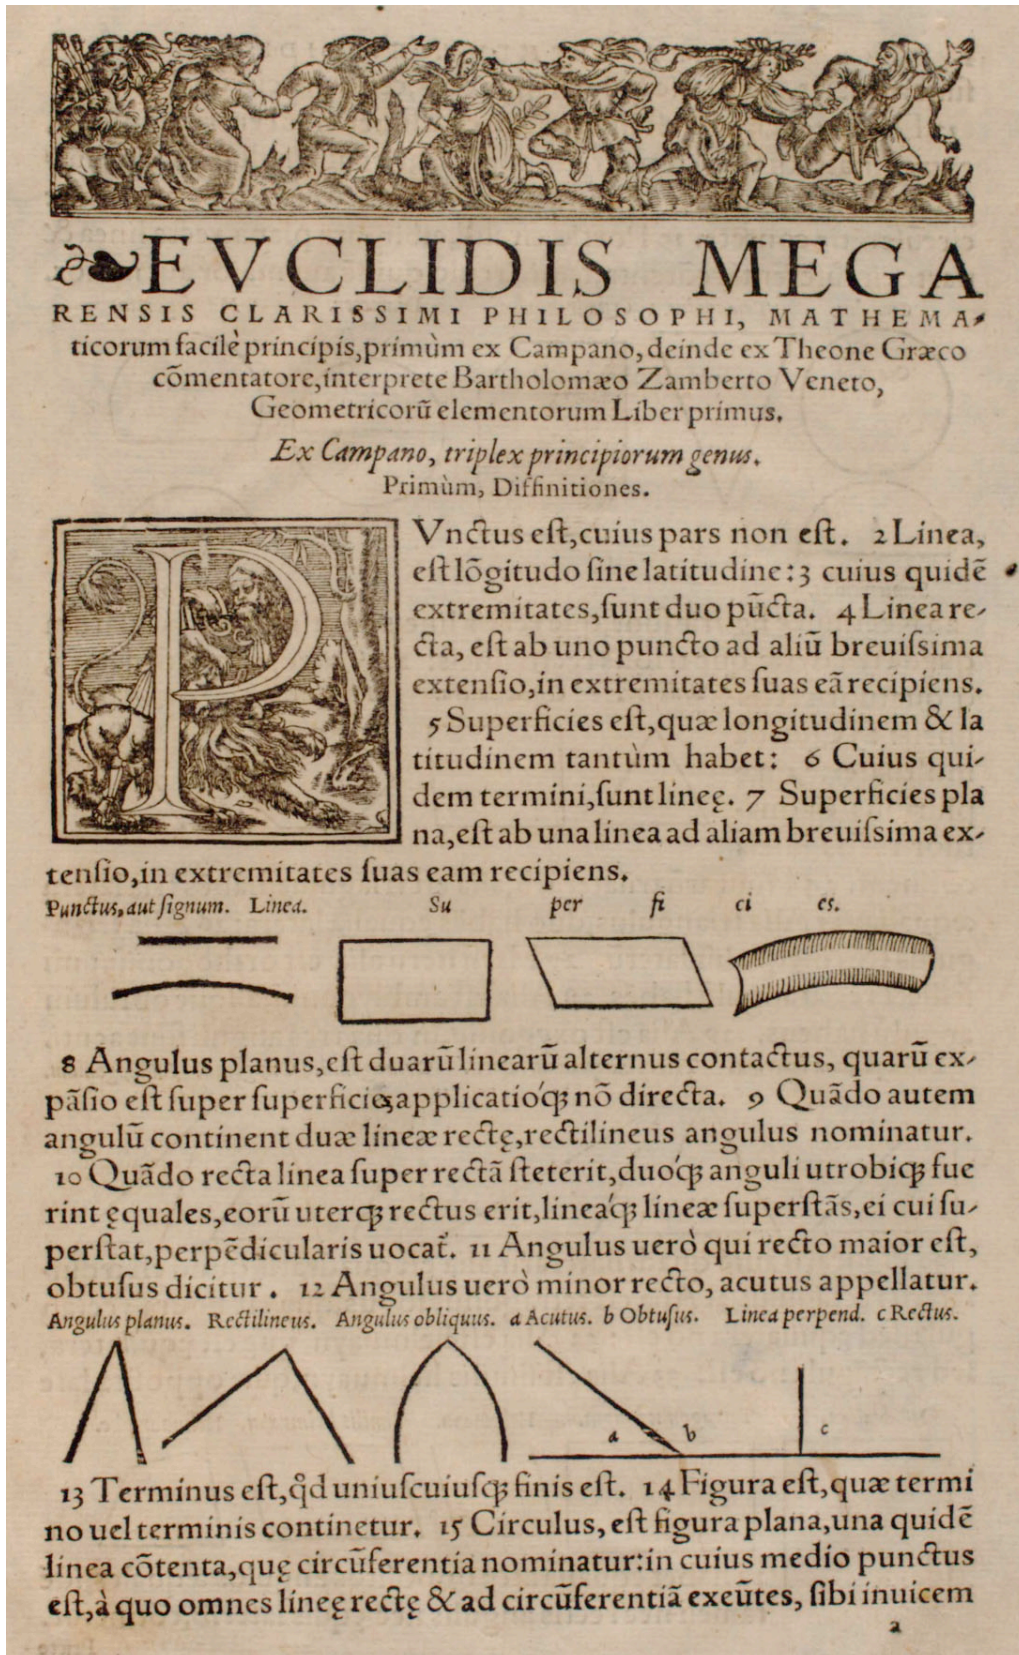 EVCLIDIS MEGA
RENSIS CLARISSIMI PHILOSOPHI, MATHEMA-
ticorum facilè principis, primùm ex Campano, deinde ex Theone Græco
cõmentatore, interprete Bartholomæo Zamberto Veneto,
Geometricorũ elementorum Liber primus.
Ex Campano, triplex principiorum genus.
Primùm, Diffinitiones.
PVnctus est, cuius pars non est. 2 Linea,
est lõgitudo sine latitudine: 3 cuius quidẽ
extremitates, sunt duo pũcta. 4 Linea re-
cta, est ab uno puncto ad aliũ breuissima
extensio, in extremitates suas eã recipiens.
5 Superficies est, quæ longitudinem & la
titudinem tantùm habet: 6 Cuius qui-
dem termini, sunt lineę. 7 Superficies pla
na, est ab una linea ad aliam breuissima ex-
tensio, in extremitates suas eam recipiens.
Punctus, aut signum. Linea. Su per fi ci es.
8 Angulus planus, est duarũ linearũ alternus contactus, quarũ ex-
pãsio est super superficiẽ, applicatióq; nõ directa. 9 Quãdo autem
angulũ continent duæ lineæ rectę, rectilineus angulus nominatur.
10 Quãdo recta linea super rectã steterit, duóq; anguli utrobiq; fue
rint ęquales, eorũ uterq; rectus erit, lineáq; lineæ superstãs, ei cui su-
perstat, perpẽdicularis uocat̃. 11 Angulus uerò qui recto maior est,
obtusus dicitur. 12 Angulus uerò minor recto, acutus appellatur.
Angulus planus. Rectilineus. Angulus obliquus. a Acutus. b Obtusus. Linea perpend. c Rectus.
a b c
13 Terminus est, q̃d uniuscuiusq; finis est. 14 Figura est, quæ termi
no uel terminis continetur. 15 Circulus, est figura plana, una quidẽ
linea cõtenta, quę circũferentia nominatur: in cuius medio punctus
est, à quo omnes lineę rectę & ad circũferentiã exeũtes, sibi inuicem
a